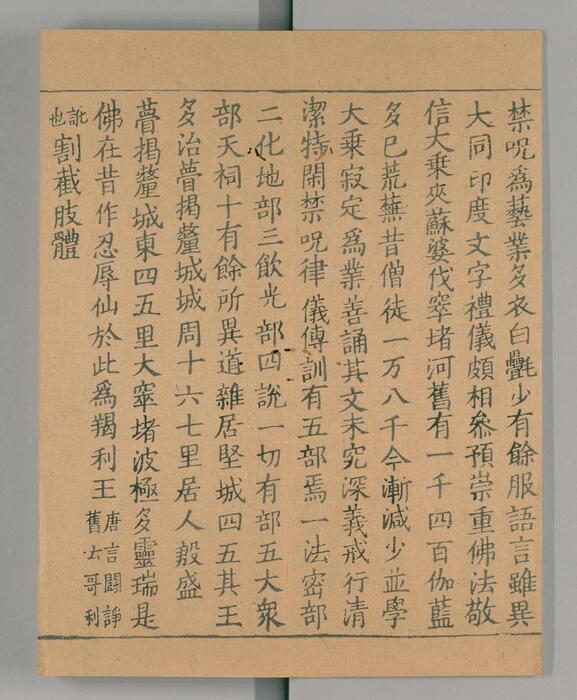 禁呪爲藝業多衣白㲲少有餘服語言雖異
大同印度文字禮儀頗相叅預崇重佛法敬
信大乘夾蘇婆伐窣堵河舊有一千四百伽藍
多已荒蕪昔僧徒一万八千今漸減少並學
大乘寂定爲業善誦其文未究深義戒行清
潔特閑禁呪律儀傳訓有五部焉一法密部
二化地部三飲光部四說一切有部五大衆
部天祠十有餘所異道雜居堅城四五其王
多治瞢揭釐城城周十六七里居人殷盛
瞢揭釐城東四五里大窣堵波極多靈瑞是
佛在昔作忍辱仙於此爲羯利王唐言鬪諍舊云哥利
訛也割截肢體